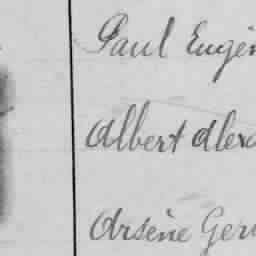 Paul Eugèn
Albert Alex
Arsène Ger